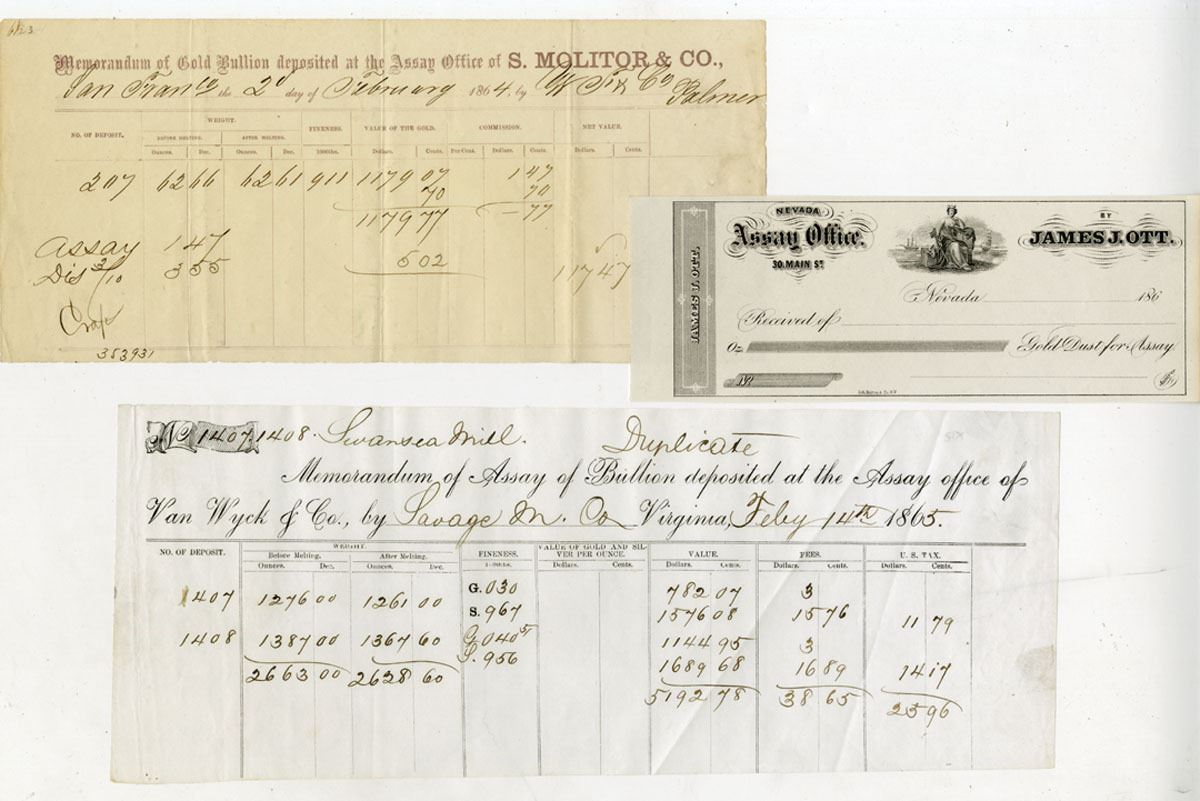 6123
Memorandum of Gold Bullion deposited at the Assay Office of S. MOLITOR & CO.,
San Franco the 2d day of February 1864 by W F & Co
Palmer
NO. OF DEPOSIT. WEIGHT. FINENESS. VALUE OF THE GOLD. COMMISSION. NET VALUE.
BEFORE MELTING. AFTER MELTING.
Ounces. Dec. Ounces. Dec. 1000ths. Dollars. Cents. Per Cent. Dollars. Cents. Dollars. Cents.
207 62 66 62 61 911 1179 07 1 47
70 70
1179 77 77
Assay 1 47
5 02
Dis 3/10 3 55 1174 7
353931
JAMES J. OTT.
NEVADA
Assay Office.
30. MAIN ST.
BY
JAMES J. OTT.
Nevada 186
Received of
Oz. Gold Dust for Assay
No.
No 1407.1408. Swansea Mill. Duplicate
Memorandum of Assay of Bullion deposited at the Assay office of
Van Wyck & Co., by Savage M. Co Virginia, Feby 14th 1865.
NO. OF DEPOSIT. WEIGHT. FINENESS. VALUE OF GOLD AND SILVER PER OUNCE. VALUE. FEES. U. S. TAX.
Before Melting. After Melting.
Ounces. Dec. Ounces. Dec. Dollars. Cents. Dollars. Cents. Dollars. Cents. Dollars. Cents.
1407 1276 00 1261 00 G. 030 782 07 3
S. 967 1576 08 15 76 11 79
1408 1387 00 1367 60 G. 040 5 1144 95 3
S. 956 1689 68 16 89 14 17
2663 00 2628 60 5192 78 38 65 25 96